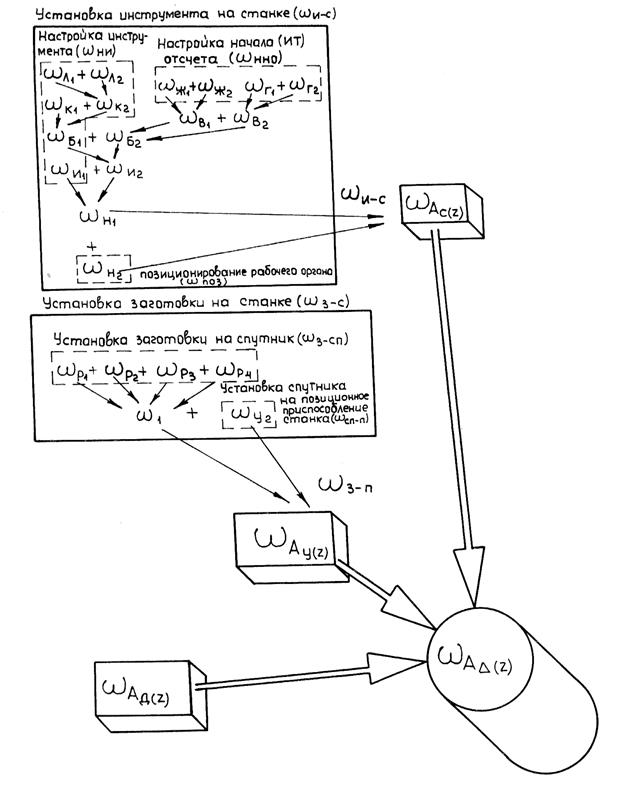 Установка инструмента на станке (ωи-с)
Настройка инстру-
мента (ωни)
Настройка начала (ИТ)
отсчета (ωнно)
ωЛ1 + ωЛ2
ωЖ1+ωЖ2 ωГ1+ωГ2
ωК1 + ωК2
ωВ1 + ωВ2
ωБ1 + ωБ2
ωИ1 + ωИ2
ωН1
+
ωН2
позиционирование рабочего органа
(ωпоз)
ωи-с
ωАС(Z)
Установка заготовки на станке (ωз-с)
Установка заготовки на спутник (ωз-сп)
ωР1+ ωР2+ ωР3 + ωР4
Установка спутника
на позиционное
приспособление
станка (ωсп-п)
ω1 + ωУ2
ωз-п
ωАУ(Z)
ωАΔ(Z)
ωАД(Z)